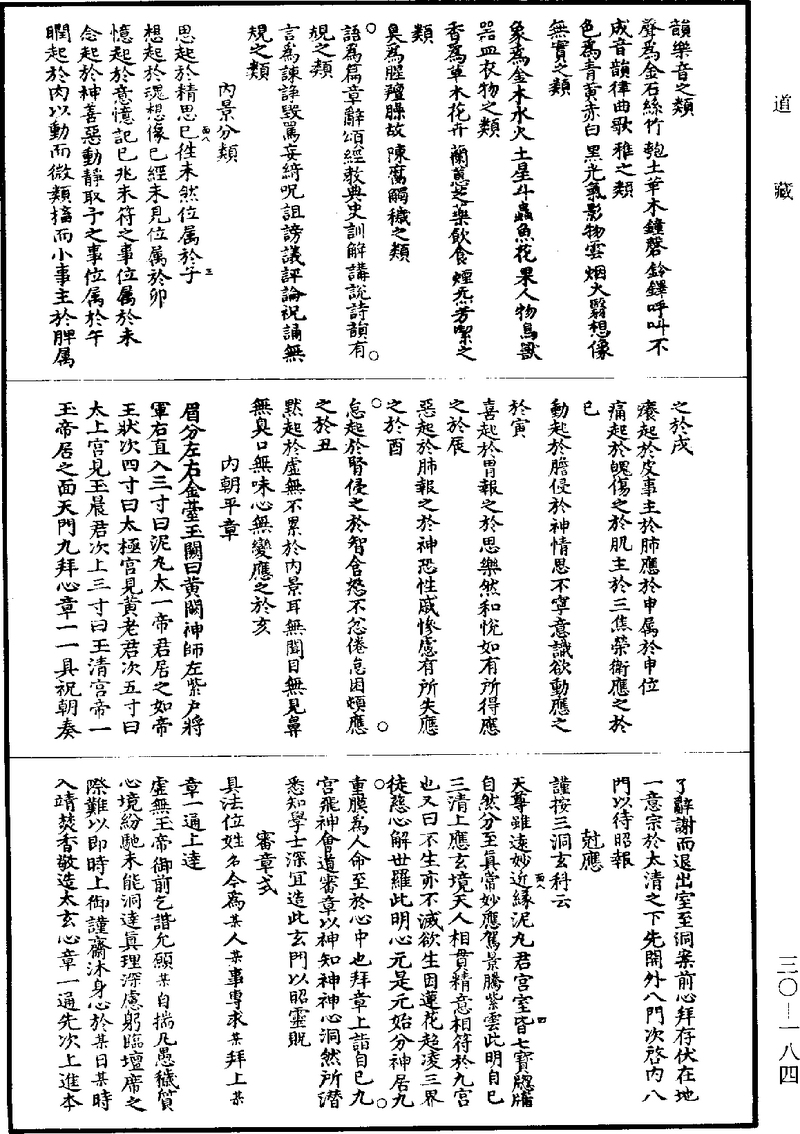 道藏
韻樂音之類
聲為金石絲竹匏土革木鐘磬鈴鐸呼叫不
成音韻律曲歌雅之類
色為青黃赤白黑光氣影物雲烟火翳想像
無實之類
象為金木水火土星斗蟲魚花果人物鳥獸
器皿衣物之類
香為草木花卉蘭蕙芝藥飲食煙炁芳潔之
類
臭為腥羶臊故陳腐觸穢之類
語為篇章辭頌經教典史訓解講說詩韻有
規之類
言為諫諍毀罵妄綺呪詛謗議評論祝誦無
規之類
內景分類
思起於精思已徃未然位属於子
想起於魂想像已經未見位属於卯
憶起於意憶記已兆未符之事位属於未
念起於神善惡動靜取予之事位属於午
瞤起於肉以動而微類搐而小事主於脾属
之於戌
癢起於皮事主於肺應於申属於申位
痛起於魄傷之於肌主於三焦榮衛應之於
巳
動起於膽侵於神情思不寧意識欲動應之
於寅
喜起於胃報之於思樂然和悅如有所得應
之於辰
惡起於肺報之於神恐性戚慘慮有所失應
之於酉
怠起於腎侵之於智含怨不忿倦怠因煩應
之於丑
默起於虛無不累於內景耳無聞目無見鼻
無臭口無味心無變應之於亥
內朝平章
眉分左右金臺玉闕曰黃闕神師左紫户將
軍右直入三寸曰泥丸太一帝君居之如帝
王狀次四寸曰太極宮見黃老君次五寸曰
太上宮見玉晨君次上三寸曰玉清宮帝一
玉帝居之面天門九拜心章一一具祝朝奏
了辭謝而退出室至洞案前心拜存伏在地
一意宗於太清之下先開外八門次啓內八
門以待昭報
尅應
謹按三洞玄科云
天尊雖遠妙近緣泥丸君宮室皆七寶牕牖
自然分至真常妙應駕景騰紫雲此明自已
三清上應玄境天人相貫精意相符於九宮
也又曰不生亦不滅欲生因蓮花超凌三界
徒慈心解世羅此明心元是元始分神居九
重膜為人命至於心中也拜章上詣自已九
宮飛神會道審章以神知神神心洞然所潛
悉知學士深宜造此玄門以昭靈貺
審章式
具法位姓名今為某人某事專求某拜上某
章一通上達
虛無玉帝御前乞諧允願某自揣凡愚穢質
心境紛馳未能洞達真理深慮躬臨壇席之
際難以即時上御謹齋沐身心於某日某時
入靖焚香敬造太玄心章一通先次上進本
三〇—一八四